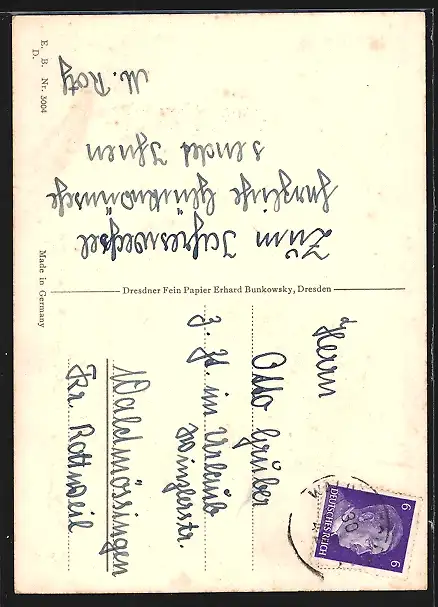 Zum Jahreswechsel
herzliche Glückwünsche
sendet Ihnen
M. Roty
E. B. Nr. 3004
D.
Made in Germany
Dresdner Fein Papier Erhard Bunkowsky, Dresden
Herrn
Otto Gruber
z. Zt. im Urlaub
Winzlerstr.
Waldmössingen
Kr Rottweil
DEUTSCHES REICH
6 6
30